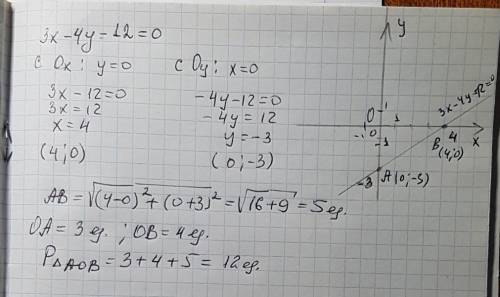 3x-4y-12=0
с Ох: y=0
3x-12=0
3x=12
x=4
(4;0)
с Оу: x=0
-4y-12=0
-4y=12
y=-3
(0;-3)
y
0
-1
0
1
1
-1
3x-4y-12=0
4
x
B
(4;0)
-3
A(0;-3)
AB=√((4-0)²+(0+3)²)=√(16+9)=5ед.
OA=3 ед.; OB=4 ед.
P△AOB=3+4+5=12ед.